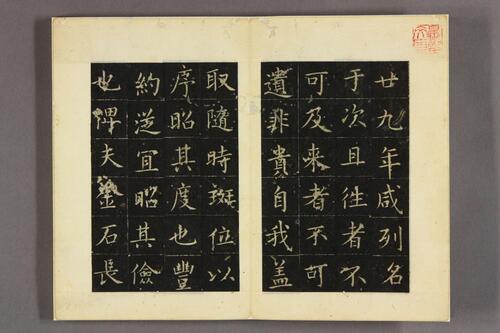 廿九年咸列名
于次且往者不
可及来者不可
遺非貴自我盖
取隨時班位以
序昭其度也豐
約從宜昭其儉
也俾夫金石長